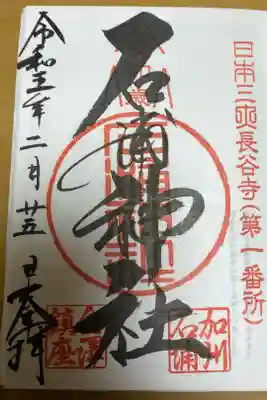 日本三長谷寺(第一番所)
石浦神社
加州
石浦
令和五年二月廿五日奉拝
金澤
鎮座